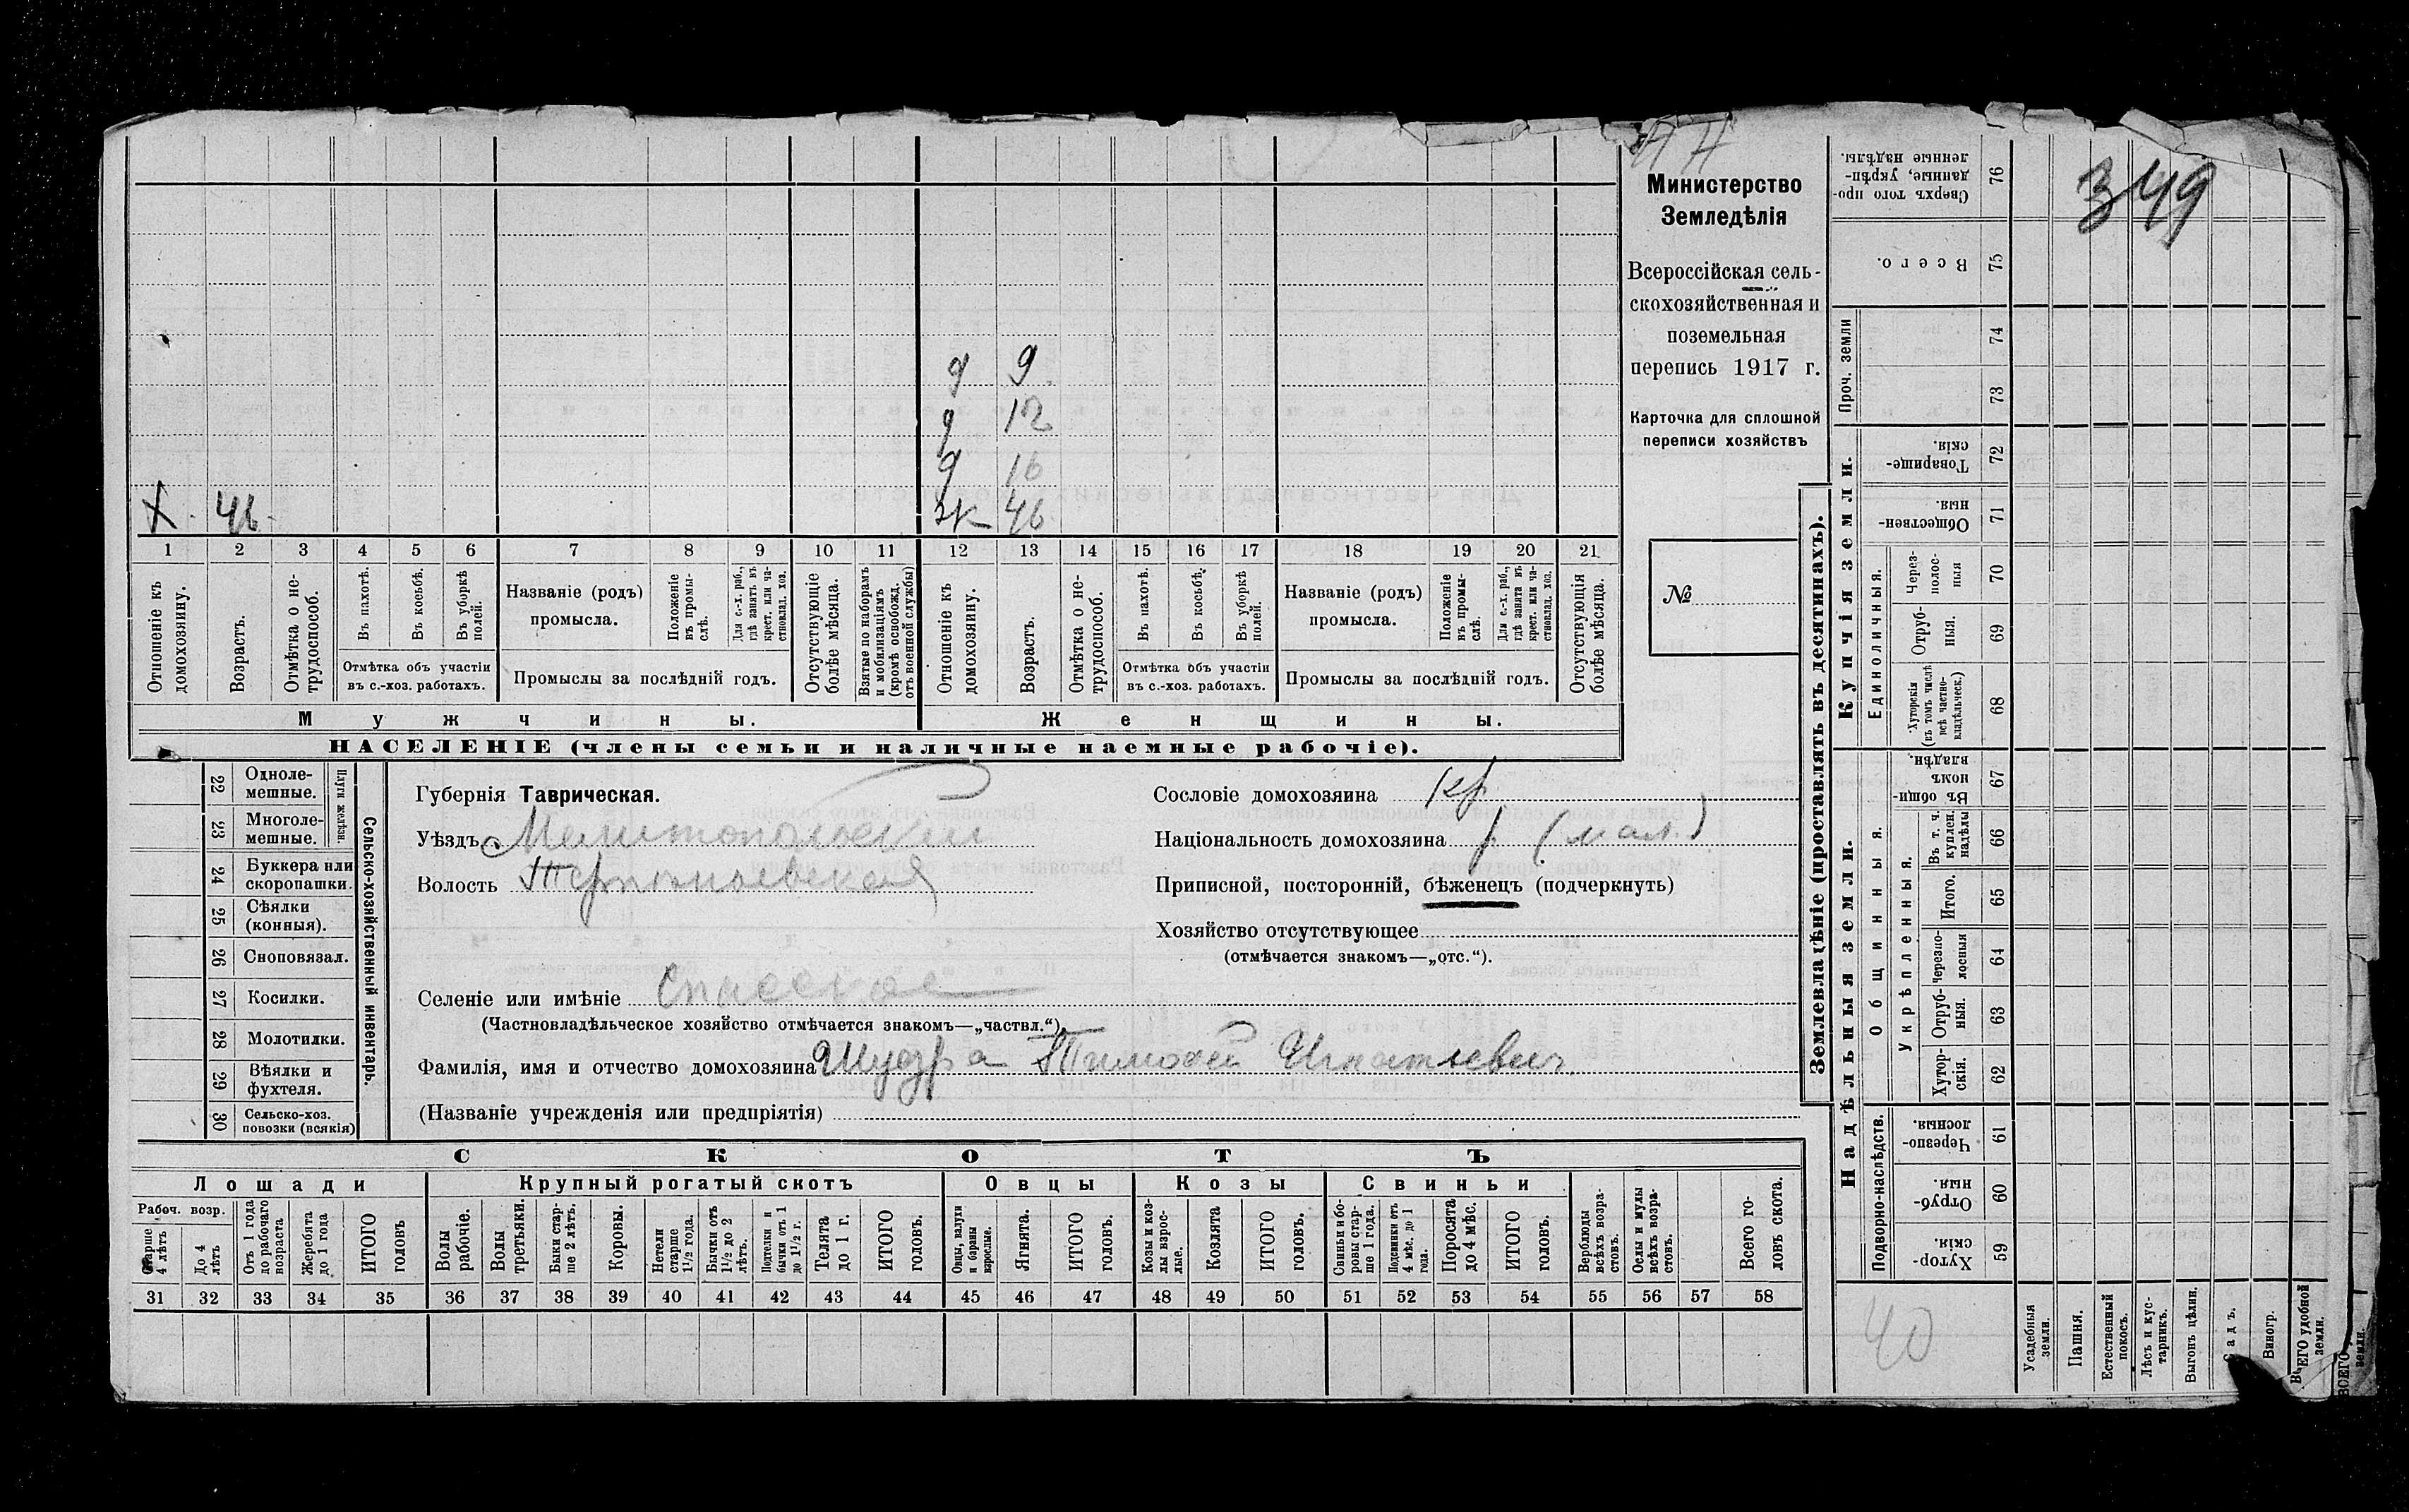 349
Министерство
Земледѣлія
Всероссійская сель-
скохозяйственная и
поземельная
перепись 1917 г.
Карточка для сплошной
переписи хозяйствъ
№
д 9
д 12
д 16
Х. 46. ж 46
1 2 3 4 5 6 7 8 9 10 11 12 13 14 15 16 17 18 19 20 21
Отношеніе къ домохозяину.
Возрастъ.
Отмѣтка о не-трудоспособ.
Въ пахотѣ.
Въ косьбѣ.
Въ уборкѣ полей.
Отмѣтка объ участіи
въ с.-хоз. работахъ.
Названіе (родъ)
промысла.
Положеніе въ промы-слѣ.
Для с.-х. раб., гдѣ занятъ въ крест. или ча-стновлад. хоз.
Промыслы за послѣдній годъ.
Отсутствующіе болѣе мѣсяца.
Взятые по наборамъ и мобилизаціямъ (кромѣ освобожд. отъ военной службы)
Отношеніе къ домохозяину.
Возрастъ.
Отмѣтка о не-трудоспособ.
Въ пахотѣ.
Въ косьбѣ.
Въ уборкѣ полей.
Отмѣтка объ участіи
въ с.-хоз. работахъ.
Названіе (родъ)
промысла.
Положеніе въ промы-слѣ.
Для с.-х. раб., гдѣ занята въ крест. или ча-стновлад. хоз.
Промыслы за послѣдній годъ.
Отсутствующія болѣе мѣсяца.
Мужчины. Женщины.
НАСЕЛЕНІЕ (члены семьи и наличные наемные рабочіе).
Сельско-хозяйственный инвентарь.
Плуги желѣзн.
22 Одноле-мешные.
23 Многоле-мешные.
24 Буккера или скоропашки.
25 Сѣялки (конныя).
26 Сноповязал.
27 Косилки.
28 Молотилки.
29 Вѣялки и фухтеля.
30 Сельско-хоз. повозки (всякія)
Губернія Таврическая.
Уѣздъ Мелитопольский
Волость
Селеніе или имѣніе Спасское
(Частновладѣльческое хозяйство отмѣчается знакомъ—„частвл.“).
Фамилія, имя и отчество домохозяина Шудра Тимофей Игнатьевич
(Названіе учрежденія или предпріятія)
Сословіе домохозяина кр.
Національность домохозяина р. (мал.)
Приписной, посторонній, бѣженецъ (подчеркнуть)
Хозяйство отсутствующее
(отмѣчается знакомъ—„отс.“).
СКОТЪ
Лошади Крупный рогатый скотъ Овцы Козы Свиньи
Рабоч. возр.
Старше 4 лѣтъ
До 4 лѣтъ
Отъ 1 года до рабочаго возраста
Жеребята до 1 года
ИТОГО головъ
Волы рабочіе.
Волы третьяки.
Быки стар-ше 2 лѣтъ.
Коровы.
Нетели старше 1½ года.
Бычки отъ 1½ до 2 лѣтъ.
Подтелки и бычки отъ 1 до 1½ г.
Телята до 1 г.
ИТОГО головъ.
Овцы, валухи и бараны взрослые.
Ягнята.
ИТОГО головъ.
Козы и коз-лы взрос-лые.
Козлята
ИТОГО головъ.
Свиньи и бо-ровы стар-ше 1 года.
Подсвинки отъ 4 мѣс. до 1 года.
Поросята до 4 мѣс.
ИТОГО головъ.
Верблюды всѣхъ возра-стовъ.
Ослы и мулы всѣхъ возра-стовъ.
Всего го-ловъ скота.
31 32 33 34 35 36 37 38 39 40 41 42 43 44 45 46 47 48 49 50 51 52 53 54 55 56 57 58
Землевладѣніе (проставлять въ десятинахъ).
Купчія земли.
Надѣльныя земли.
Проч. земли
Единоличныя.
Общинныя.
Укрѣпленныя.
Подворно-наслѣдств.
Сверхъ того про-данные, укрѣп-ленные надѣлы. 76
Всего. 75
74
73
Товарище-скія. 72
Обществен-ныя. 71
Через-полос-ныя 70
Отруб-ныя. 69
Хуторскія (въ томъ числѣ всѣ частно-владѣльческ.) 68
Въ общин-номъ владѣн. 67
Въ т. ч. куплен. надѣлы 66
Итого. 65
Черезпо-лосныя 64
Отруб-ныя. 63
Хутор-скія. 62
Черезпо-лосныя. 61
Отруб-ныя. 60
Хутор-скія. 59
40
Усадебныя земли.
Пашня.
Естественный покосъ.
Лѣсъ и кус-тарникъ.
Выгонъ цѣлин.
Садъ.
Виногр.
ВСЕГО удобной земли.
ВСЕГО земли.